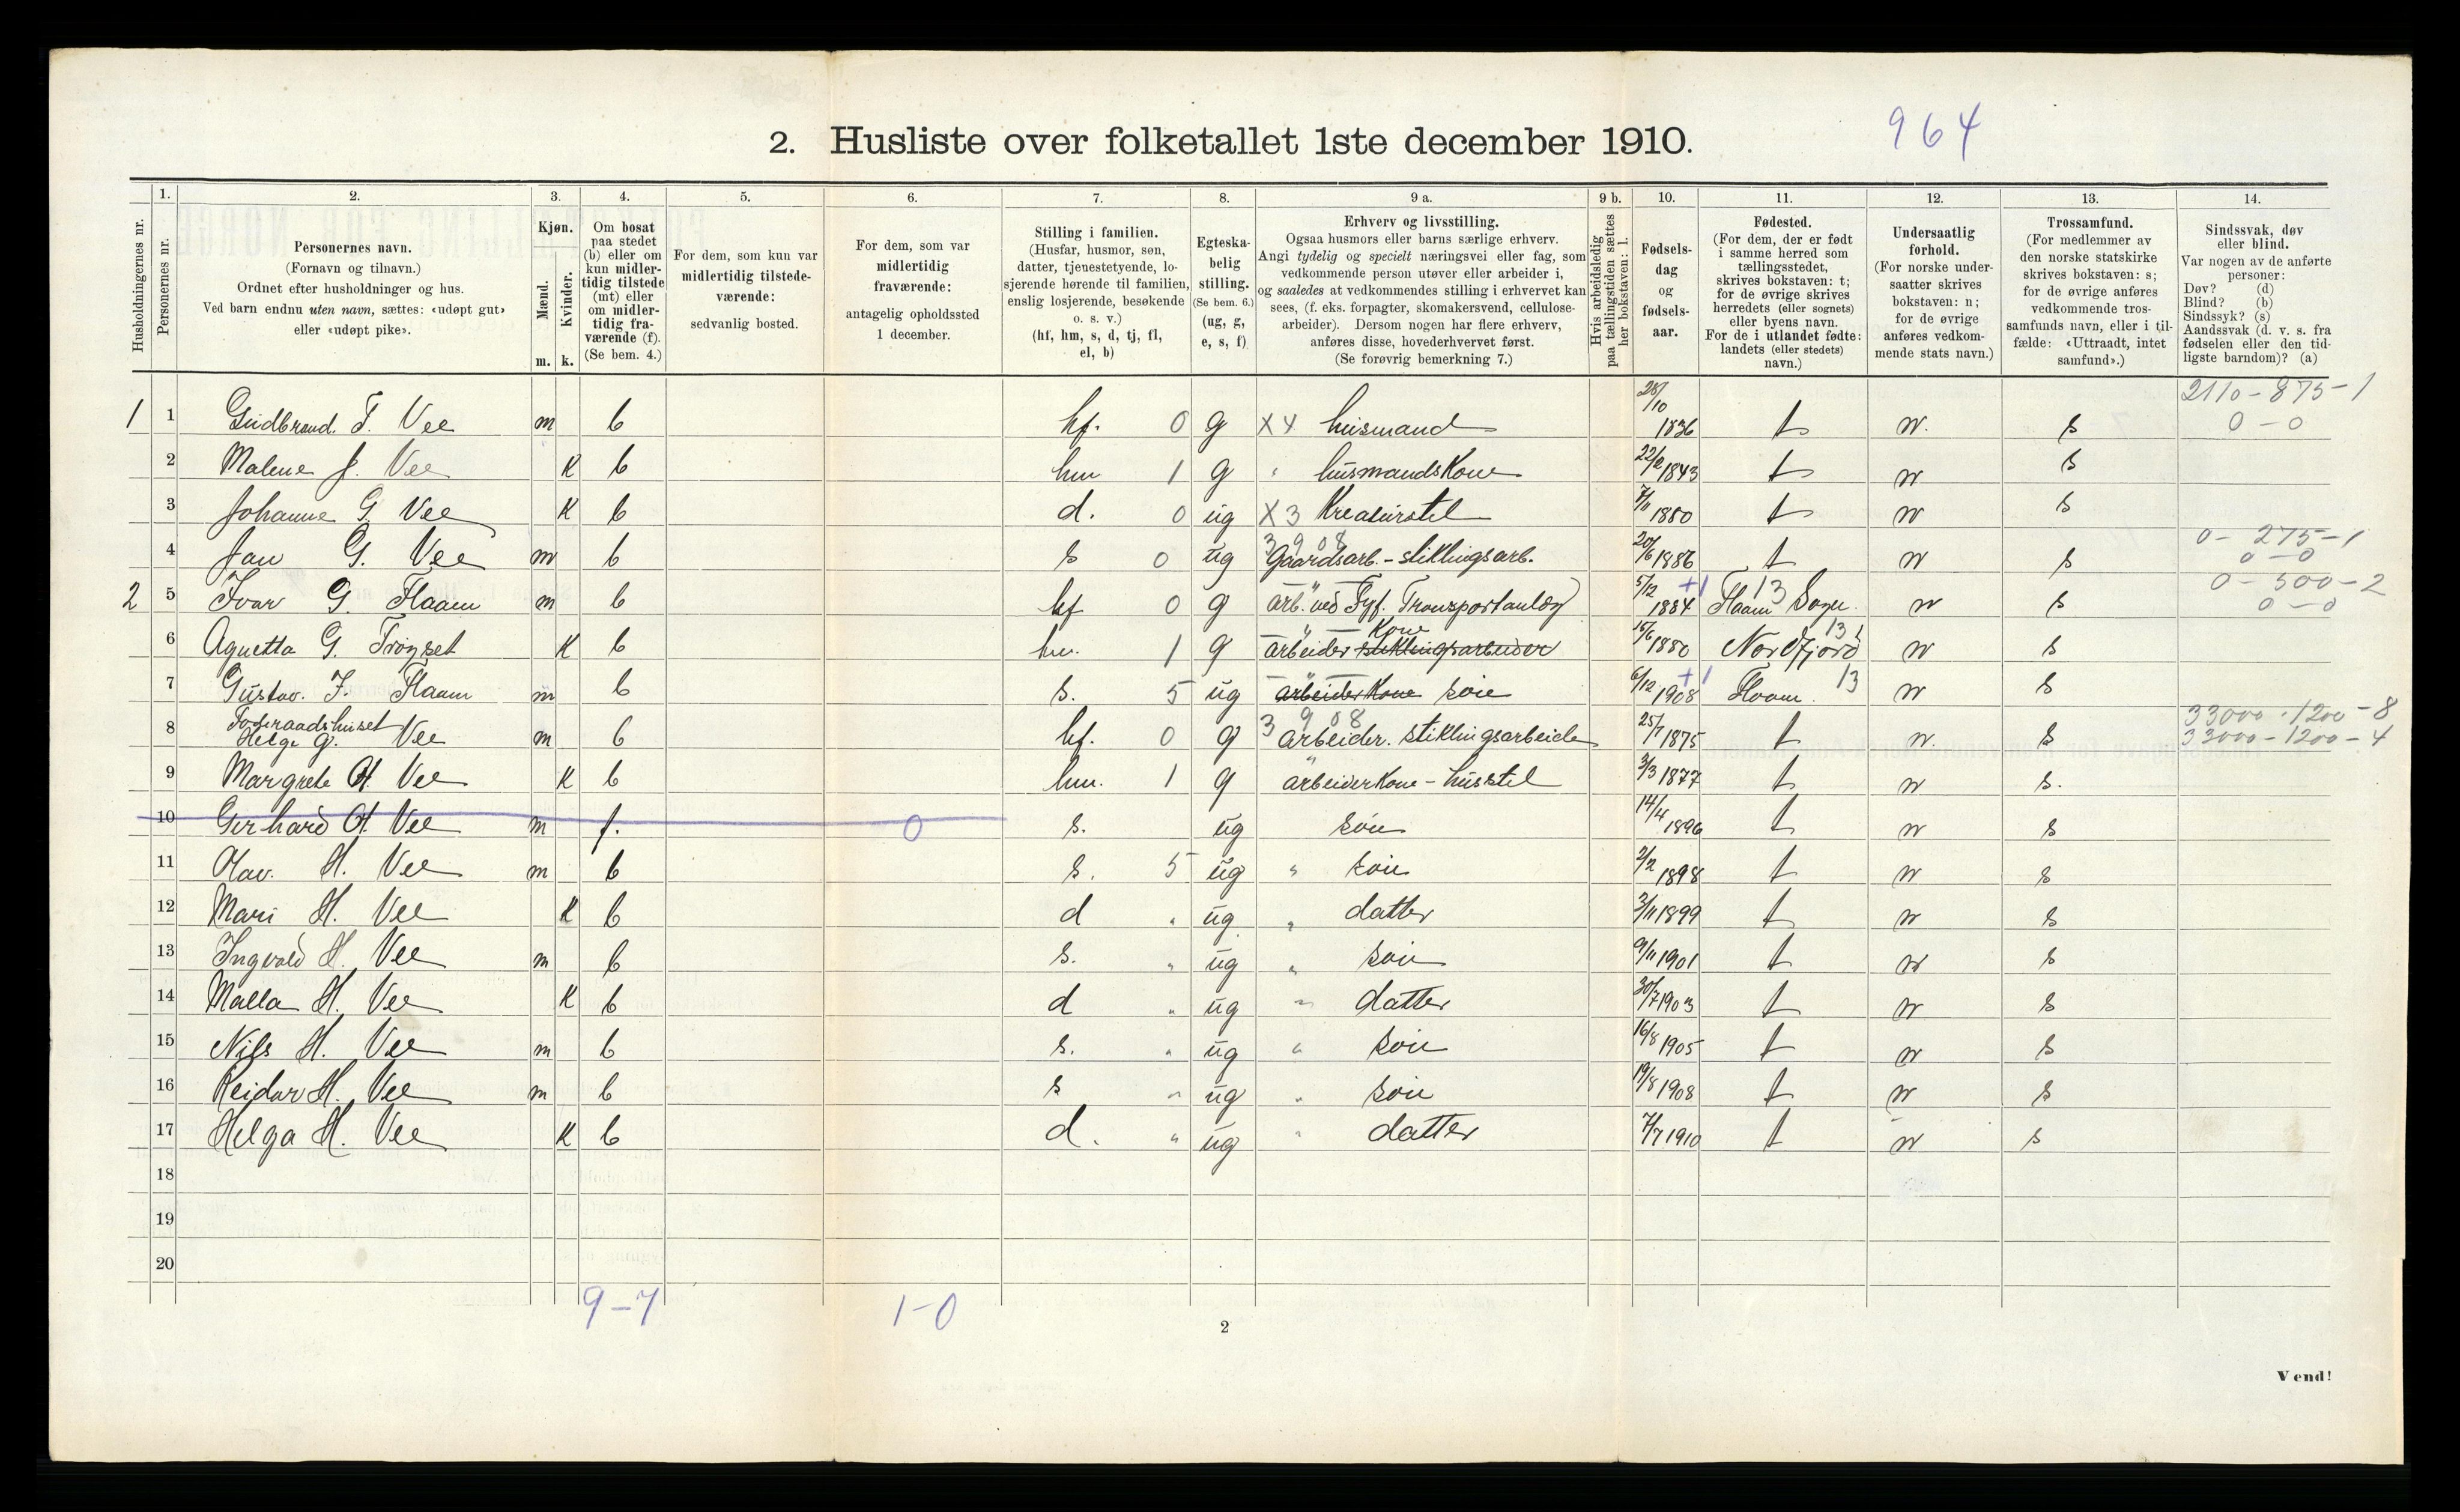 2. Husliste over folketallet 1ste december 1910.
964
Husholdningernes nr.
1. Personernes nr.
2. Personernes navn. (Fornavn og tilnavn.) Ordnet efter husholdninger og hus. Ved barn endnu uten navn, sættes: «udøpt gut» eller «udøpt pike».
3. Kjøn. Mænd. m. Kvinder. k.
4. Om bosat paa stedet (b) eller om kun midlertidig tilstede (mt) eller om midlertidig fraværende (f). (Se bem. 4.)
5. For dem, som kun var midlertidig tilstedeværende: sedvanlig bosted.
6. For dem, som var midlertidig fraværende: antagelig opholdssted 1 december.
7. Stilling i familien. (Husfar, husmor, søn, datter, tjenestetyende, losjerende hørende til familien, enslig losjerende, besøkende o. s. v.) (hf, hm, s, d, tj, fl, el, b)
8. Egteskabelig stilling. (Se bem. 6.) (ug, g, e, s, f)
9 a. Erhverv og livsstilling. Ogsaa husmors eller barns særlige erhverv. Angi tydelig og specielt næringsvei eller fag, som vedkommende person utøver eller arbeider i, og saaledes at vedkommendes stilling i erhvervet kan sees, (f. eks. forpagter, skomakersvend, cellulosearbeider). Dersom nogen har flere erhverv, anføres disse, hovederhvervet først. (Se forøvrig bemerkning 7.)
9 b. Hvis arbeidsledig paa tællingstiden sættes her bokstaven: l.
10. Fødselsdag og fødselsaar.
11. Fødested. (For dem, der er født i samme herred som tællingsstedet, skrives bokstaven: t; for de øvrige skrives herredets (eller sognets) eller byens navn. For de i utlandet fødte: landets (eller stedets) navn.)
12. Undersaatlig forhold. (For norske undersaatter skrives bokstaven: n; for de øvrige anføres vedkommende stats navn.)
13. Trossamfund. (For medlemmer av den norske statskirke skrives bokstaven: s; for de øvrige anføres vedkommende trossamfunds navn, eller i tilfælde: «Uttraadt, intet samfund».)
14. Sindssvak, døv eller blind. Var nogen av de anførte personer: Døv? (d) Blind? (b) Sindssyk? (s) Aandssvak (d. v. s. fra fødselen eller den tidligste barndom)? (a)
1 1 Gudbrand. T. Vee m b hf. 0 g X4 husmand 28/10 1836 t n. s 2110-875-1 0-0
2 Malene J. Vee k b hm 1 g " husmandskone 22/2 1843 t n s
3 Johanne G. Vee k b d. 0 ug X3 Kreaturstel 1880 t n s
4 Jan G. Vee m b s 0 ug 3908 Gaardsarb.-stiklingsarb. 20/6 1886 t n s 0-275-1 0-0
2 5 Ivar G. Flaam m b hf 0 g arb. ved Fyf. Transportanlæg 5/12 1884 +1 Flaam Sogn 13 n s 0-500-2 0-0
6 Agnetta G. k b hm. 1 g arbeider Kone stiklingsarbeider 15/6 1880 Nordfjord 131 n s
7 Gustav. I. Flaam m b s. 5 ug arbeider Kone søn 6/12 1908 +1 Flaam 13 n s
8 Foderaadshuset Helge G. Vee m b hf. 0 g 3908 arbeider. stiklingsarbeide 25/7 1875 t n. s 33000-1200-8 33000-1200-4
9 Margrete H. Vee k b hm. 1 g arbeiderkone - husstel 3/3 1877 t n s.
10 Gerhard H. Vee m f. 0 s. ug søn 14/4 1896 t n s
11 Olav. H. Vee m b s. 5 ug " søn 2/2 1898 t n s
12 Mari H. Vee k b d " ug " datter 3/11 1899 t n s
13 Ingvald H. Vee m b s. " ug " søn 9/11 1901 t n s
14 Malla H. Vee k b d " ug " datter 30/7 1903 t n s
15 Nils H. Vee m b s. " ug " søn 16/8 1905 t n s
16 Reidar H. Vee m b s " ug " søn 19/8 1908 t n s
17 Helga H. Vee k b d. " ug " datter 7/7 1910 t n s
18
19
20
9-7 1-0
2
Vend!